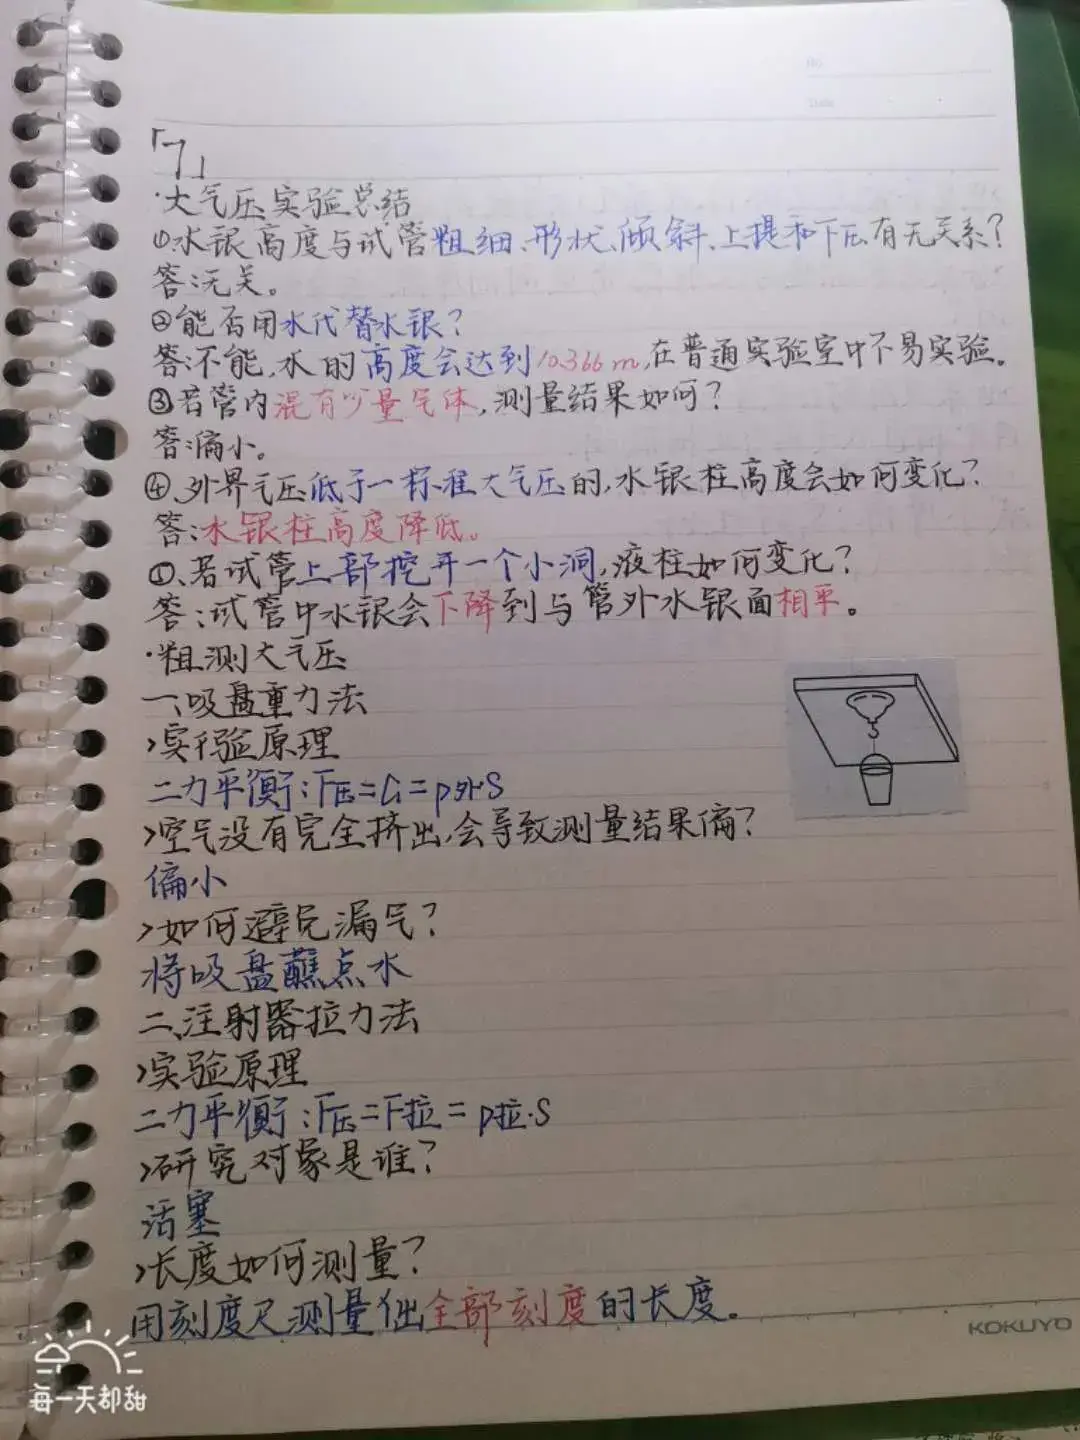 No
Date
「7」
·大气压实验总结
①水银高度与试管粗细、形状、倾斜、上提和下压有无关系？
答:无关。
②能否用水代替水银？
答:不能,水的高度会达到10.366m,在普通实验室中不易实验。
③若管内混有少量气体,测量结果如何？
答:偏小。
④、外界气压低于一标准大气压的,水银柱高度会如何变化？
答:水银柱高度降低。
①、若试管上部挖开一个小洞,液柱如何变化？
答:试管中水银会下降到与管外水银面相平。
·粗测大气压
一、吸盘重力法
>实验原理
二力平衡:F压=G=p外S
>空气没有完全挤出,会导致测量结果偏？
偏小
>如何避免漏气？
将吸盘蘸点水
二、注射器拉力法
>实验原理
二力平衡:F压=F拉=p拉·S
>研究对象是谁？
活塞
>长度如何测量？
用刻度尺测量出全部刻度的长度。
KOKUYO
每一天都甜